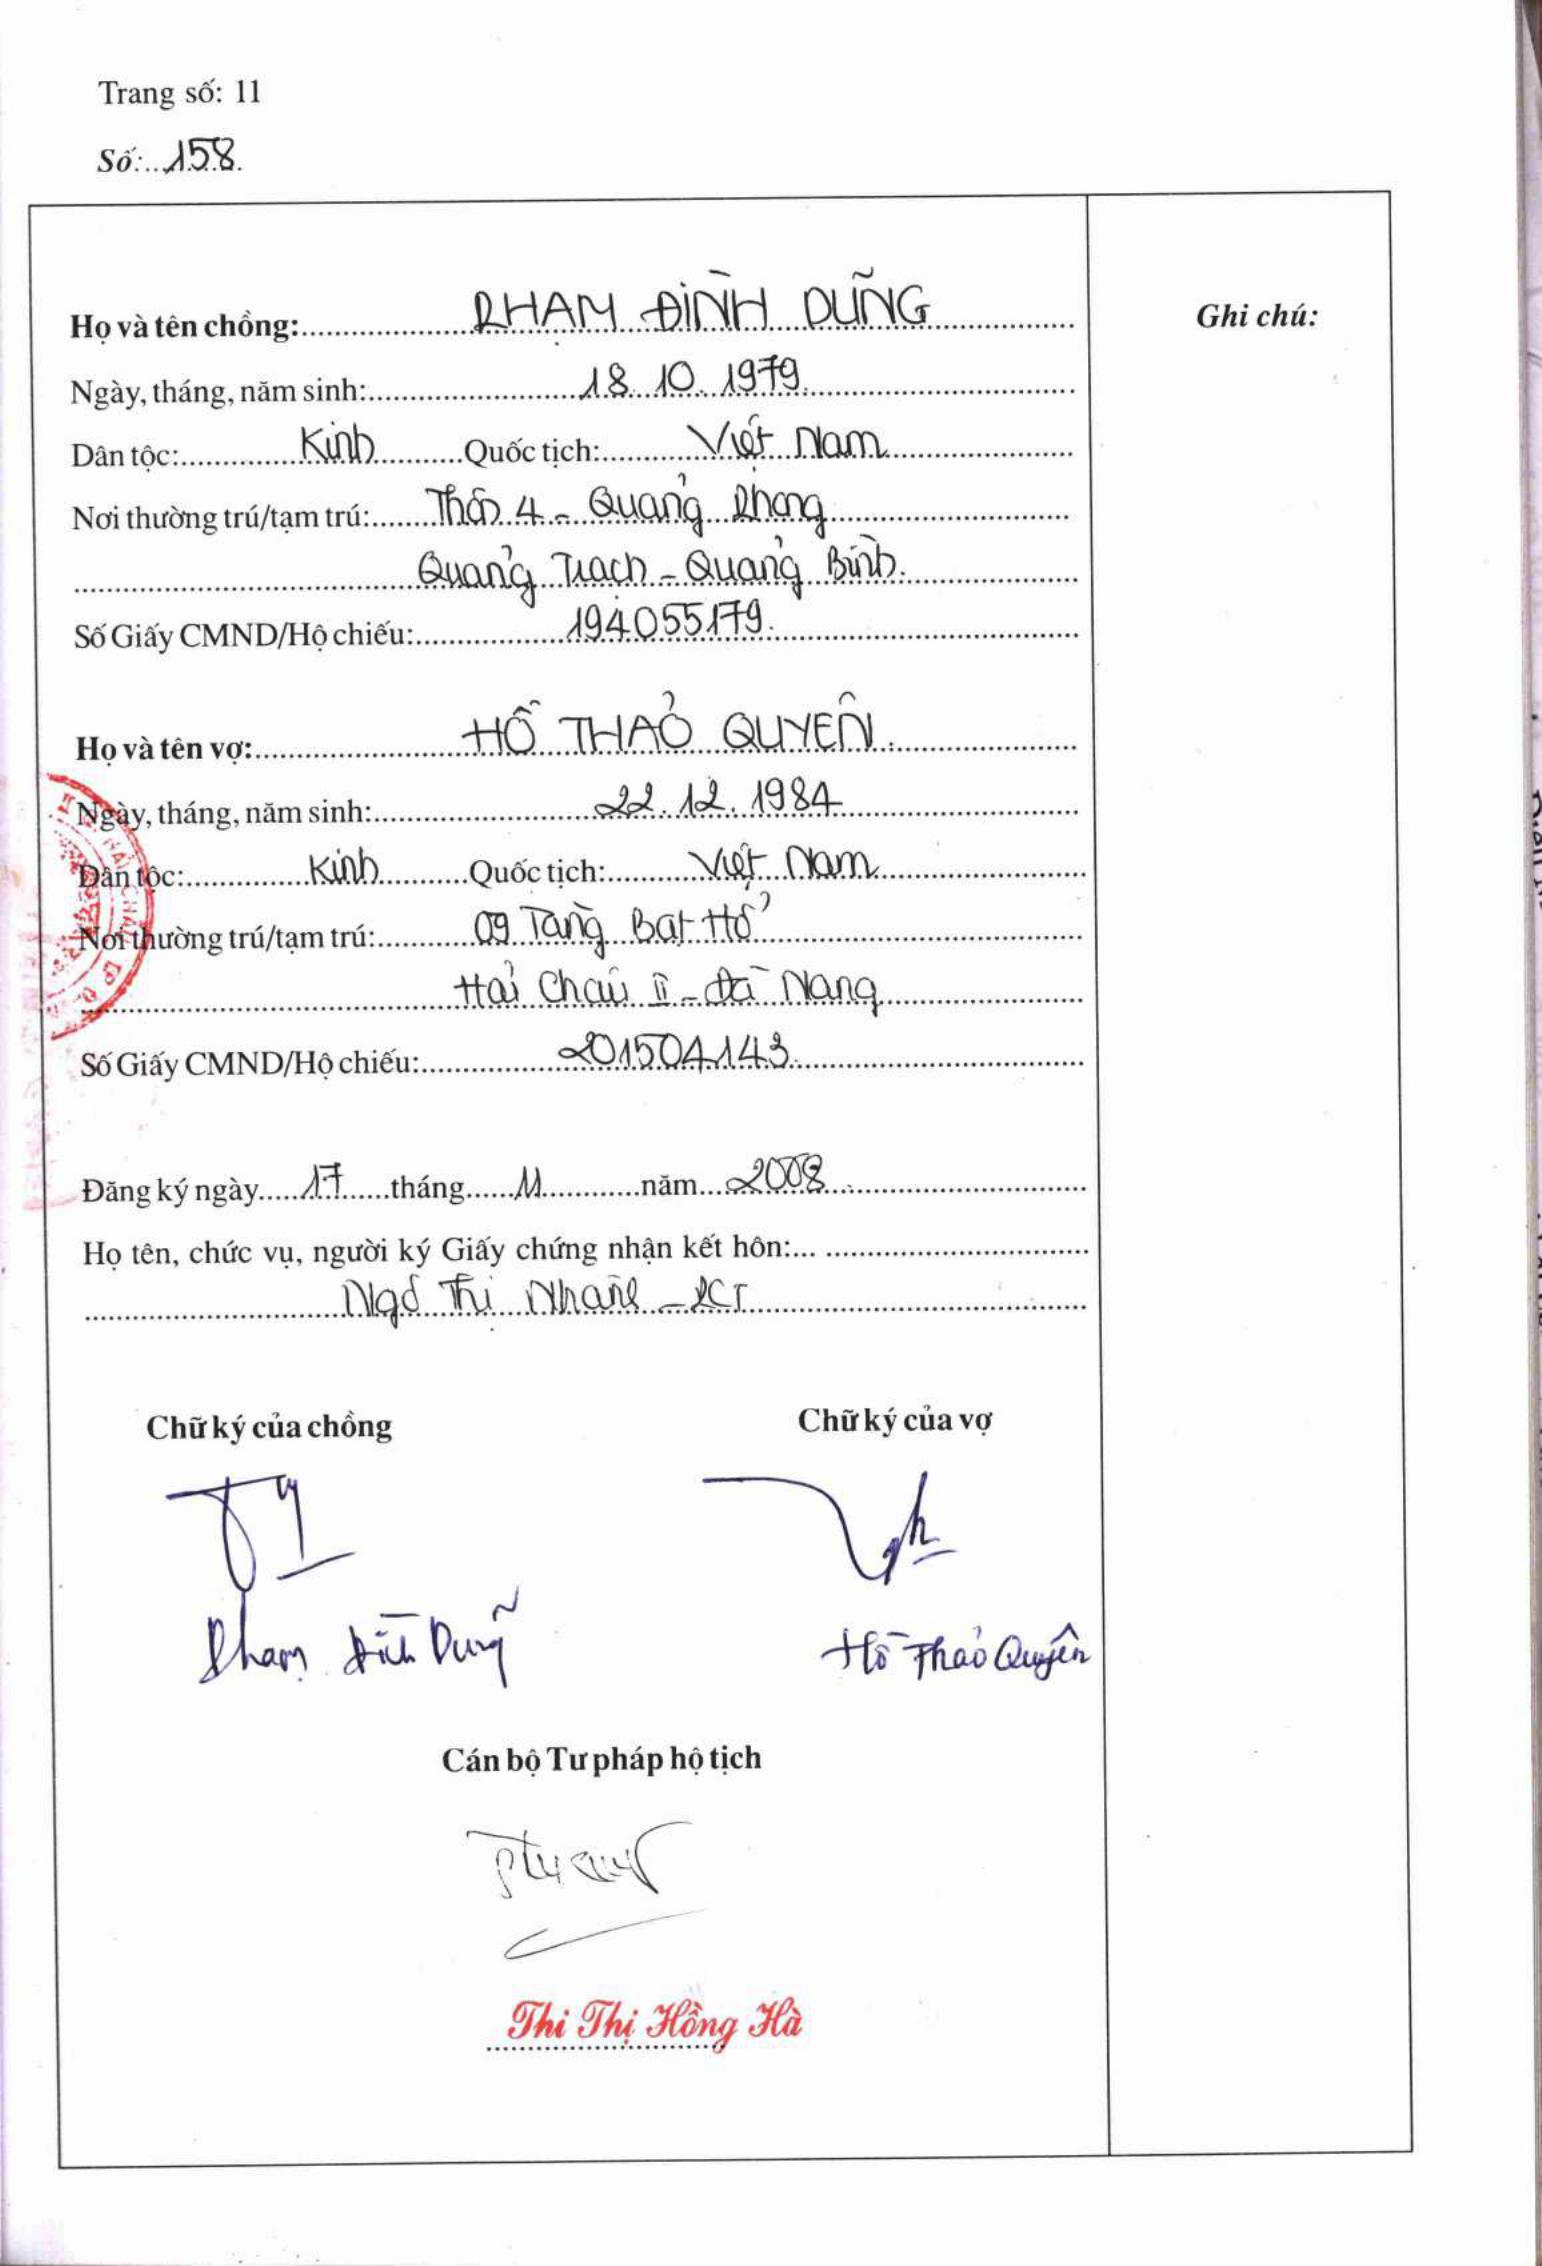 Trang số: 11
Số: 158
Họ và tên chồng: PHẠM ĐÌNH DŨNG
Ghi chú:
Ngày, tháng, năm sinh: 18.10.1979
Dân tộc: Kinh Quốc tịch: Việt Nam
Nơi thường trú/tạm trú: Thôn 4 - Quảng Phong
Quảng Trạch - Quảng Bình.
Số Giấy CMND/Hộ chiếu: 194055179.
Họ và tên vợ: HỒ THẢO QUYÊN.
Ngày, tháng, năm sinh: 22.12.1984
Dân tộc: Kinh Quốc tịch: Việt Nam
Nơi thường trú/tạm trú: 09 Tăng Bạt Hổ
Hải Châu II - Đà Nang
Số Giấy CMND/Hộ chiếu: 201504143.
Đăng ký ngày 17 tháng 11 năm 2008
Họ tên, chức vụ, người ký Giấy chứng nhận kết hôn:
Ngô Thị - PCT
Chữ ký của chồng Chữ ký của vợ
Phạm Đình Dũng Hồ Thảo Quyên
Cán bộ Tư pháp hộ tịch
Thi Thị Hồng Hà